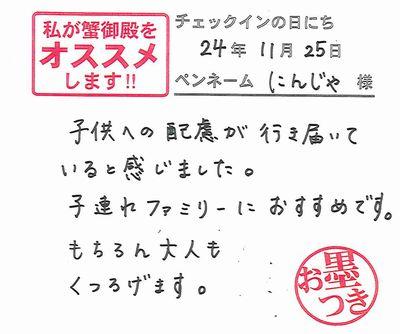 私が蟹御殿を
オススメ
します!!
チェックインの日にち
24年 11月 25日
ペンネーム にんじゃ 様
子供への配慮が行き届いて
いると感じました。
子連れファミリーにおすすめです。
もちろん大人も
くつろげます。
お墨つき